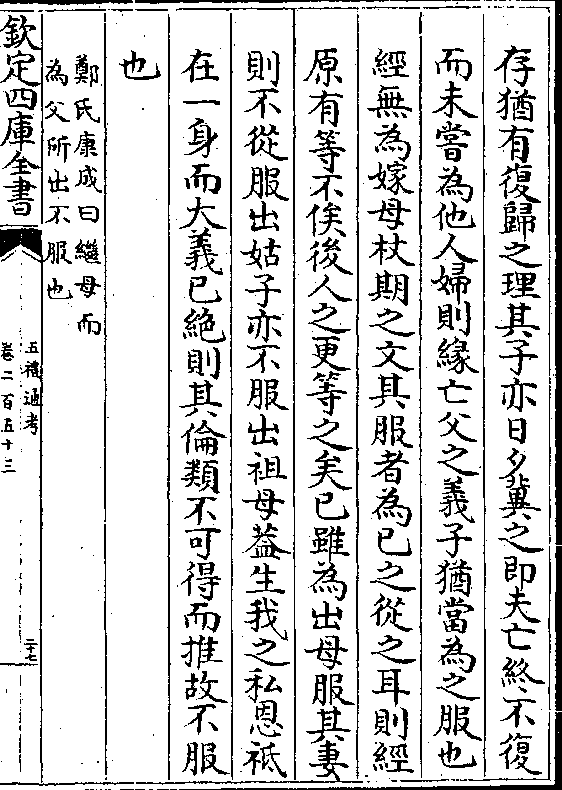 存猶有復歸之理其子亦日夕冀之即夫亡終不復
而未嘗為他人婦則緣亡父之義子猶當為之服也
經無為嫁母杖期之文其服者為已之從之耳則經
原有等不俟後人之更等之矣已雖為出母服其妻
則不從服出姑子亦不服出祖母葢生我之私恩祗
在一身而大義已絶則其倫類不可得而推故不服
也
鄭氏康成曰繼母而
為父所出不服也
欽定四庫全書
五禮通考
卷二百五十三
二十七